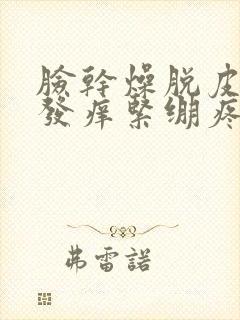 臉幹燥脱皮
發痒緊绷疼
弗雷諾